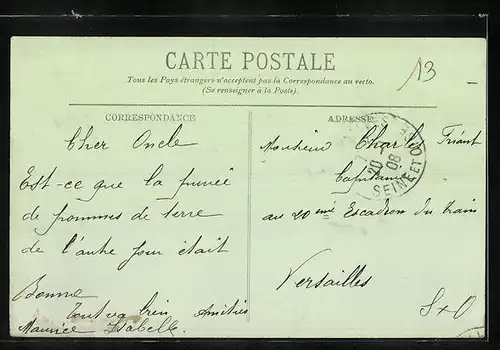 CARTE POSTALE
Tous les Pays étrangers n'acceptent pas la Correspondance au recto.
(Se renseigner à la Poste).
13
CORRESPONDANCE
Cher Oncle
Est-ce que la purée
de pommes de terre
de l'autre jour était
Bonne
Tout va bien Amitiés
Maurice Isabelle.
ADRESSE
Monsieur Charles Triant
Capitaine
au 20eme Escadron du train
Versailles
S & O
20
08
SEINE ET OISE